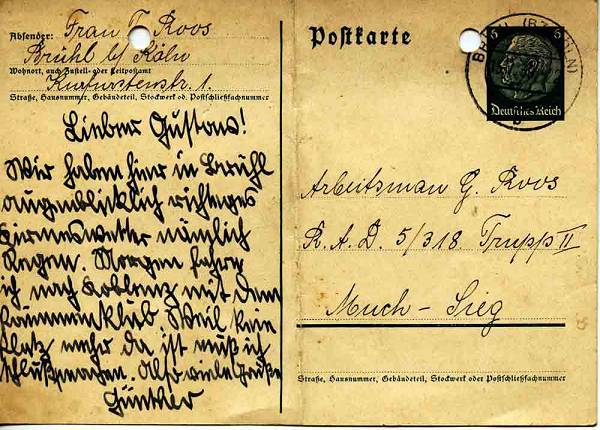 Absender: Frau T. Roos
Brühl b/ Köln
Wohnort, auch Zustell- oder Leitpostamt
Kurfürstenstr. 1.
Straße, Hausnummer, Gebäudeteil, Stockwerk od. Postschließfachnummer
Lieber Gustav!
Wir haben hier in Brühl
augenblicklich richtiges
Kirmeswetter nämlich
Regen. Morgen fahre
ich nach Koblenz mit dem
Weil kein
Platz mehr da ist muß ich
schlußmachen. Also viele Grüße
Günther
Postkarte
6 6
Deutsches Reich
Arbeitsman G. Roos
R. A. D. 5/318 Trupp II
Much - Sieg
Straße, Hausnummer, Gebäudeteil, Stockwerk oder Postschließfachnummer